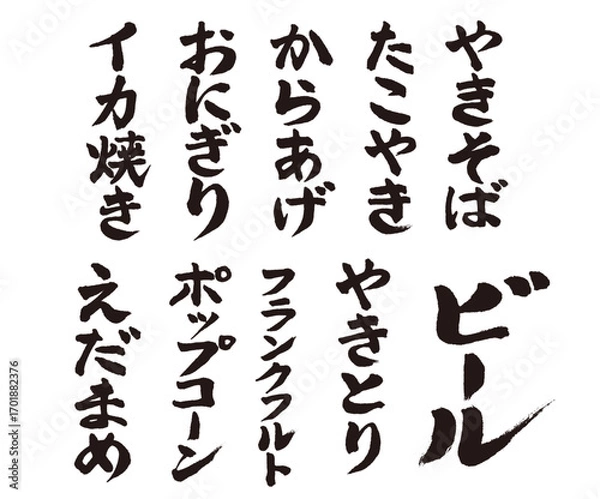 やきそば
たこやき
からあげ
おにぎり
イカ焼き
ビール
やきとり
フランクフルト
ポップコーン
えだまめ
Adobe Stock | #1701882376